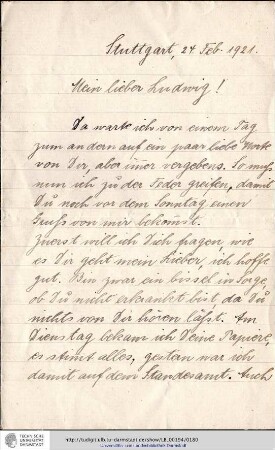 Stuttgart, 24 Feb. 1921.
Mein lieber Ludwig!
Da warte ich von einem Tag
zum andern auf ein paar liebe Worte
von Dir, aber im̄er vergebens. So muss
nun ich zu der Feder greifen, damit
Du noch vor dem Sonntag einen
Gruss von mir bekom̄st.
Zuerst will ich Dich fragen, wie
es Dir geht mein Lieber, ich hoffe
gut. Bin zwar ein bissel in Sorge,
ob Du nicht erkrankt bist, da Du
nichts von Dir hören läßt. Am
Dienstag bekam ich Deine Papiere,
es stim̄t alles, gestern war ich
damit auf dem Standesamt. Auch
TECHNISCHE
UNIVERSITÄT
DARMSTADT